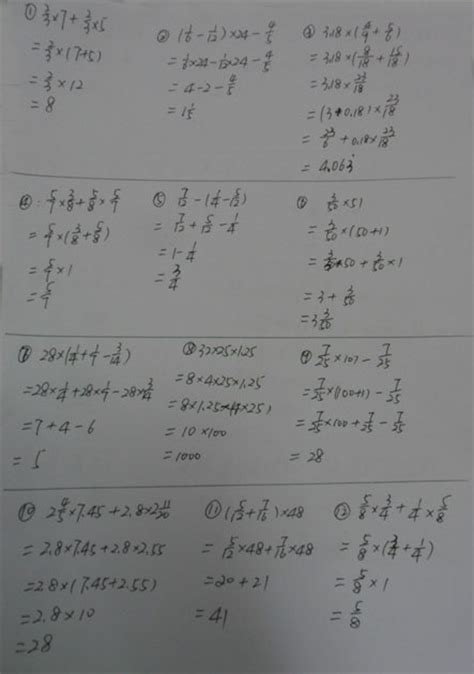 ① 2/3×7+2/3×5
=2/3×(7+5)
=2/3×12
=8
② (1/6-1/12)×24-4/5
=1/6×24-1/12×24-4/5
=4-2-4/5
=1 1/5
③ 3.18×(4/9+5/6)
=3.18×(8/18+15/18)
=3.18×23/18
=(3+0.18)×23/18
=23/6+0.18×23/18
=4.063̇
④ 5/9×3/8+5/8×5/9
=5/9×(3/8+5/8)
=5/9×1
=5/9
⑤ 7/12-(1/4-5/12)
=7/12+5/12-1/4
=1-1/4
=3/4
⑥ 3/50×51
=3/50×(50+1)
=3/50×50+3/50×1
=3+3/50
=3 3/50
⑦ 28×(1/4+1/7-3/14)
=28×1/4+28×1/7-28×3/14
=7+4-6
=5
⑧ 32×25×1.25
=8×4×25×1.25
=8×1.25×(4×25)
=10×100
=1000
⑨ 7/25×101-7/25
=7/25×(100+1)-7/25
=7/25×100+7/25-7/25
=28
⑩ 2 4/5×7.45+2.8×2 11/20
=2.8×7.45+2.8×2.55
=2.8×(7.45+2.55)
=2.8×10
=28
⑪ (5/12+7/16)×48
=5/12×48+7/16×48
=20+21
=41
⑫ 5/8×3/4+1/4×5/8
=5/8×(3/4+1/4)
=5/8×1
=5/8